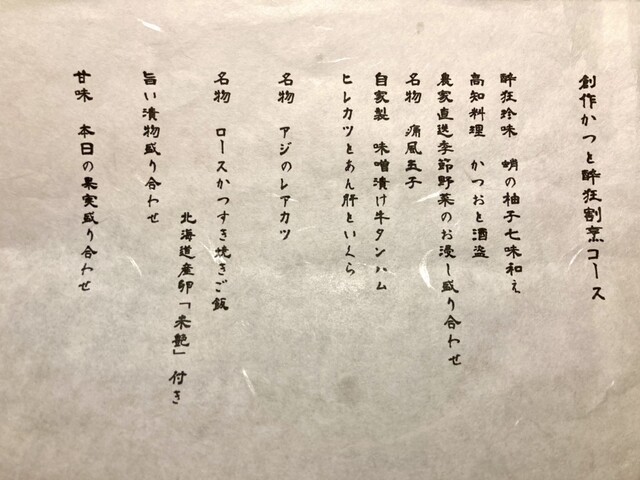 創作かつと酔狂割烹コース
酔狂珍味 蛸の柚子七味和え
高知料理 かつおと酒盗
農家直送季節野菜のお浸し盛り合わせ
名物 痛風玉子
自家製 味噌漬け牛タンハム
ヒレカツとあん肝といくら
名物 アジのレアカツ
名物 ロースかつすき焼きご飯
北海道産卵「米艶」付き
旨い漬物盛り合わせ
甘味 本日の果実盛り合わせ